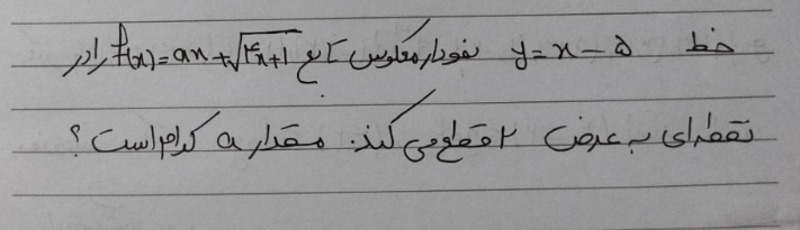 خط y = x - ۵ نمودار معکوس تابع f(x) = ax + √۴x+1 را در
نقطه‌ای به عرض ۲ قطع می‌کند. مقدار a کدام است؟